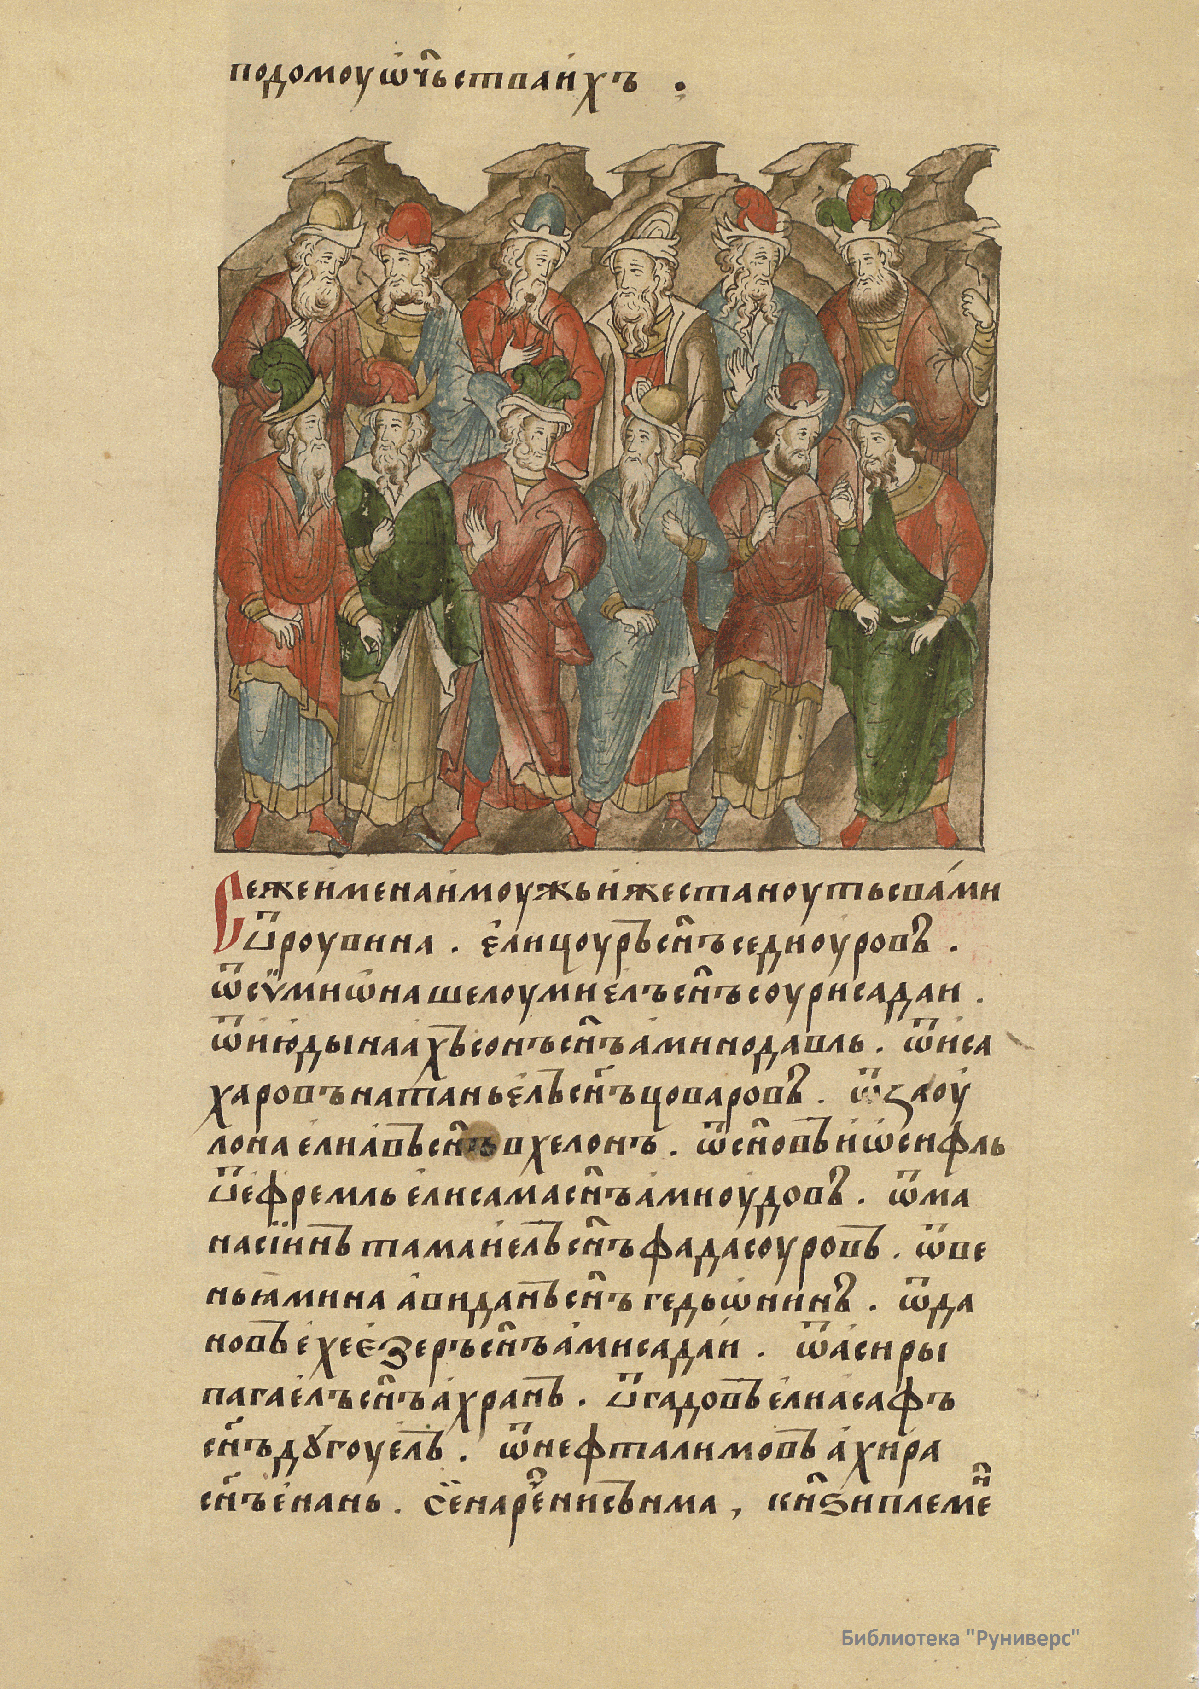 подомоуѡ҆ч҃ьстваи҆хъ .
Сежеи҆менаи҆моужьи҆жестаноутьсва́ми
ѿроувина . є҆лицоуръсн҃ъседиоуровъ .
ѿсѵ̈миѡ҆нашелоумиєлъсн҃ъсоурисадаи .
ѿи҆ю҆дынаахъсонъсн҃ъа҆минодавль . ѿиса
харовъната́ньєлъсн҃ъцоваровъ . ѿзаоу҆
лонаелиа҆въсн҃ъвхелонъ . ѿсн҃овъи҆ѡ҆сифль
ѿефремльелисамасн҃ъа҆миоу҆довъ . ѿма
насїинътамаи҆елъсн҃ъфадасоуровъ . ѿве
ньꙗминаа҆виданъсн҃ъгедьѡ҆нинъ . ѿда
новъе҆хеєзеръсн҃ъа҆мисадаи҆ . ѿа҆сиры
пагаелъсн҃ъа҆хранъ . ѿгадовъе҆лиа҆сафъ
сн҃ъдꙋгоуе҆лъ . ѿнефталимовъа҆хира
сн҃ъе҆нань . се҆наре҆нисвнма , кн҃ѕиплеме҆н
Библиотека "Руниверс"